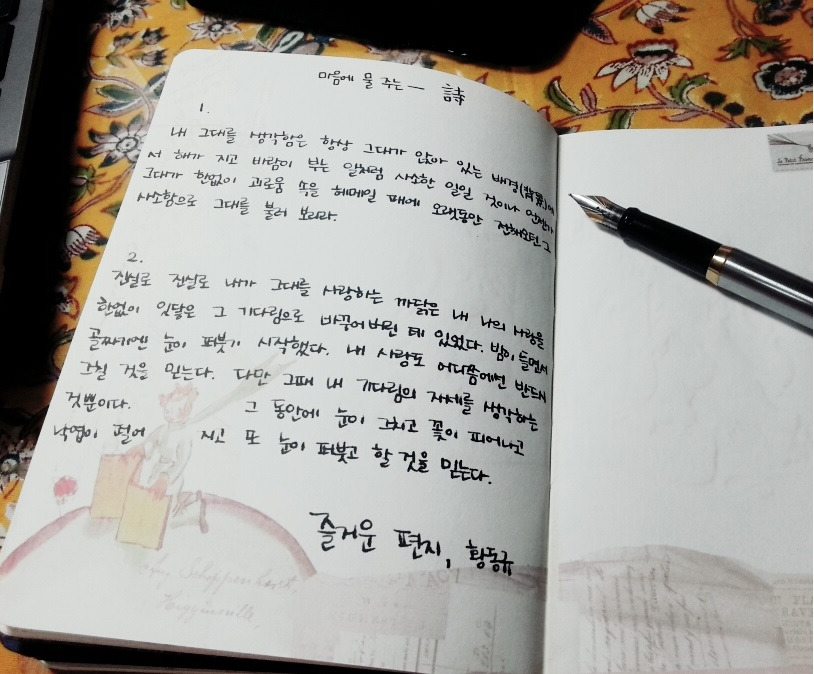 마음에 물 주는 — 詩
1.
내 그대를 생각함은 항상 그대가 앉아 있는 배경(背景)에
서 해가 지고 바람이 부는 일처럼 사소한 일일 것이나 언젠가
그대가 한없이 괴로움 속을 헤메일 때에 오랫동안 전해오던 그
사소함으로 그대를 불러 보리라.
2.
진실로 진실로 내가 그대를 사랑하는 까닭은 내 나의 사랑을
한없이 잇닿은 그 기다림으로 바꾸어버린 데 있었다. 밤이 들면서
골짜기엔 눈이 퍼붓기 시작했다. 내 사랑도 어디쯤에선 반드시
그칠 것을 믿는다. 다만 그때 내 기다림의 자세를 생각하는
것뿐이다. 그 동안에 눈이 그치고 꽃이 피어나고
낙엽이 떨어지고 또 눈이 퍼붓고 할 것을 믿는다.
즐거운 편지, 황동규
Le Petit Prince